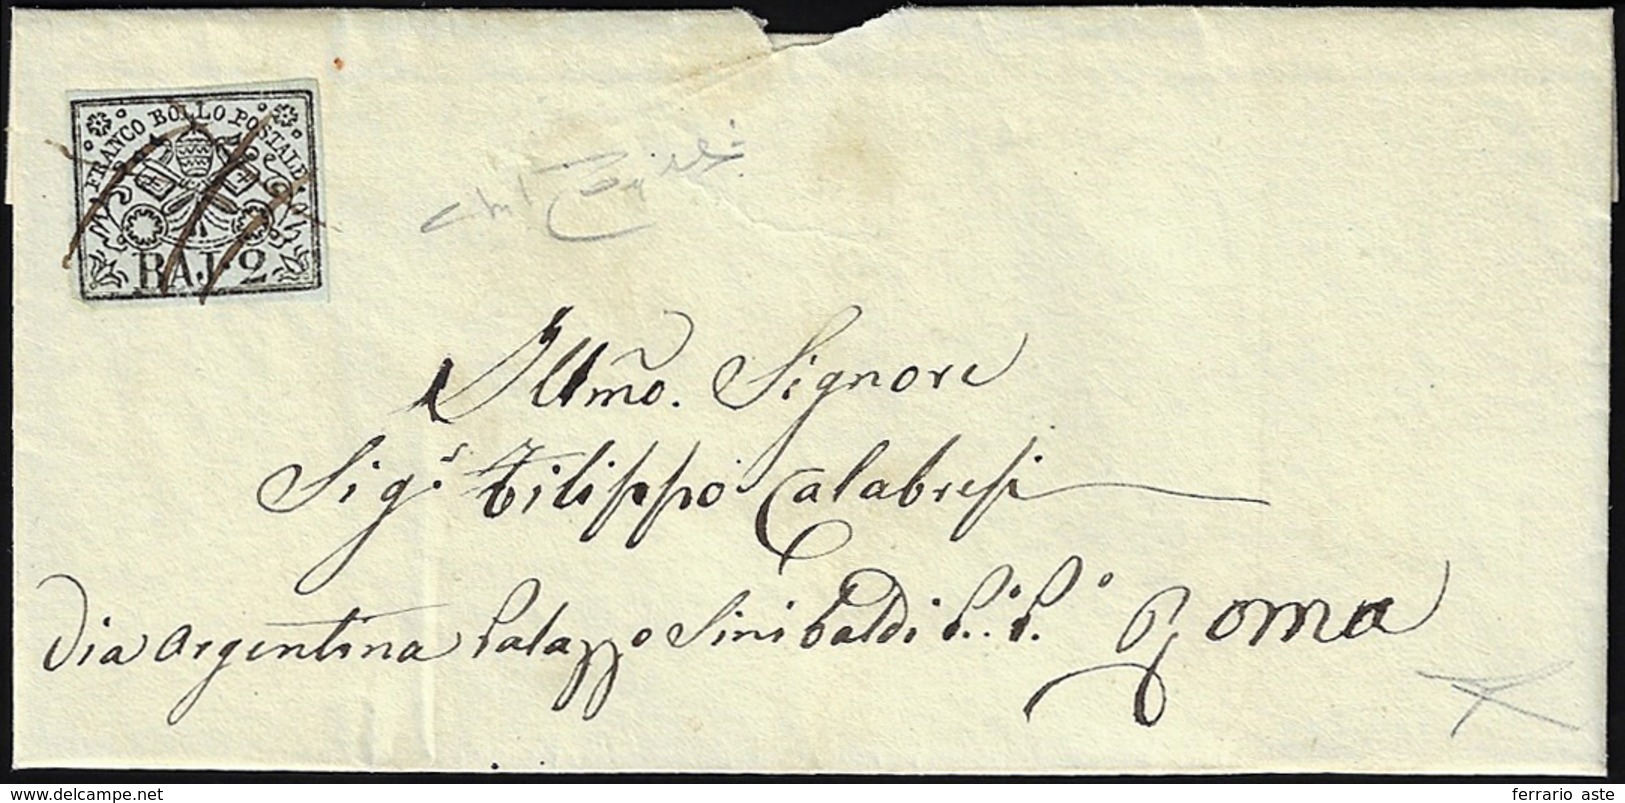 FRANCO BOLLO POSTALE
BAJ. 2
Illmõ. Signore
Sig.r Filippo Calabresi
Via Argentina Palazzo Sinibaldi P.i P.o Roma
www.delcampe.com
ferrario aste